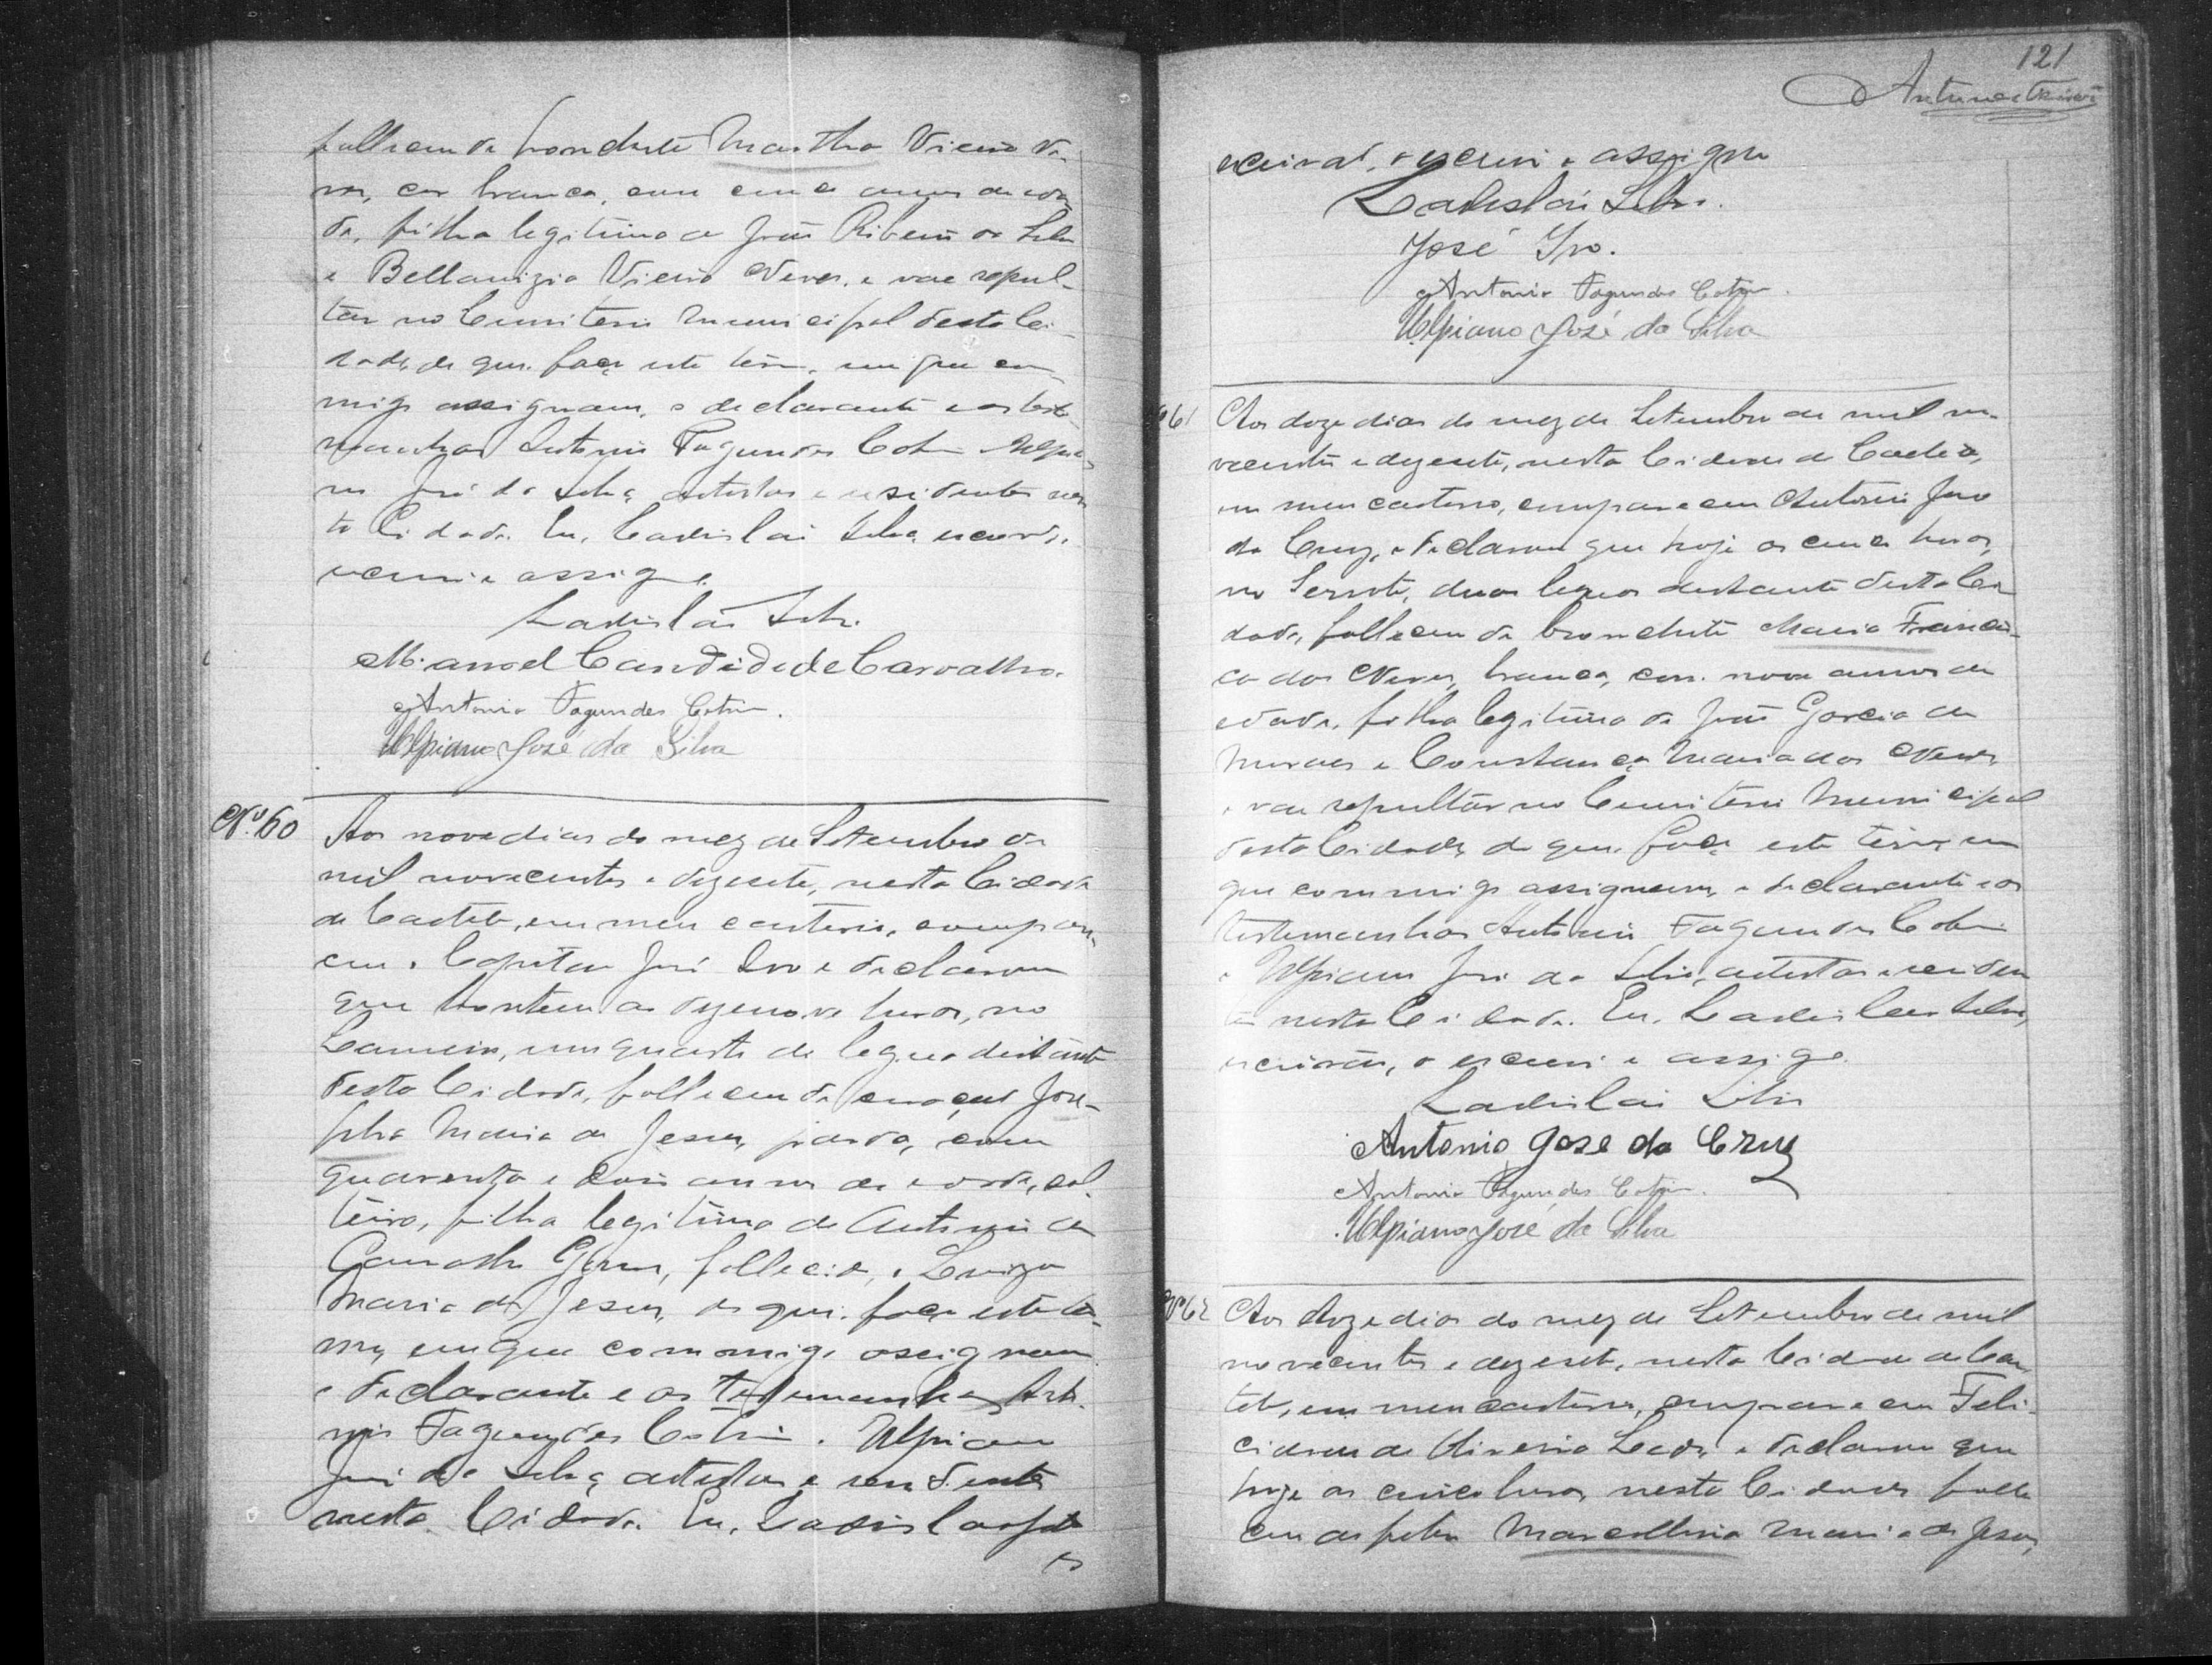 falleceu de bronchite Martha Vieira Ne-
ves, cor branca, com cinco annos de eda-
de, filha legitima de João Ribeiro da Silva
e Bellanizia Vieira Neves, e vae sepul-
tar no Cemiterio Municipal desta Ci-
dade, de que faço este termo, em que com-
migo assignam, o declarante e as teste-
munhas Antonio Fagundes Cotrim e Ulpia-
no José da Silva, artistas e residentes nes-
ta Cidade. Eu, Ladislau Silva, escrivão,
escrevi e assigno.
Ladislau Silva.
Manoel Candido de Carvalho.
Antonio Fagundes Cotrim.
Ulpiano José da Silva
Nº 60
Aos nove dias do mez de Setembro de
mil novecentos e dezesete, nesta Cidade
de Caeteté, em meu cartorio, compare-
ceu o Capitão José Ivo e declarou
que hontem as dezenove horas, no
um quarto de legua distante
desta Cidade, falleceu de Jose-
pha Maria de Jesus, parda, com
quarenta e dois annos de edade, sol-
teira, filha legitima de Antonio de
fallecido, e Luiza
Maria de Jesus, de que faço este ter-
mo, em que commigo assignam
o declarante e as testemunhas Anto-
nio Fagundes Cotrim e Ulpiano
José da Silva, artistas e residentes
nesta Cidade. Eu, Ladislau Silva
es
121
Antunes
escrivão, o escrevi e assigno
Ladislau Silva.
José Ivo.
Antonio Fagundes Cotrim.
Ulpiano José da Silva
61
Aos doze dias do mez de Setembro de mil no-
vecentos e dezesete, nesta Cidade de Caeteté,
em meu cartorio, compareceu Antonio José
da Cruz, e declarou que hoje as cinco horas,
no Serrote, duas leguas distante desta Ci-
dade, falleceu de bronchite Maria Francis-
ca das Neves, branca, com nove annos de
edade, filha legitima de João Garcia de
Moraes e Constança Maria das Neves,
e vae sepultar no Cemiterio Municipal
desta Cidade, de que faço este termo, em
que commigo assignam, o declarante e as
testemunhas Antonio Fagundes Cotrim
e Ulpiano José da Silva, artistas e residen-
tes nesta Cidade. Eu, Ladislau Silva,
escrivão, o escrevi e assigno.
Ladislau Silva
Antonio Jose da Cruz
Antonio Fagundes Cotrim.
Ulpiano José da Silva
Nº 62
Aos doze dias do mez de Setembro de mil
novecentos e dezesete, nesta Cidade de Cae-
teté, em meu cartorio, compareceu Feli-
cidade de Oliveira e declarou que
hoje as cinco horas, nesta Cidade, falle-
ceu de febre Marcellina Maria de Jesus,